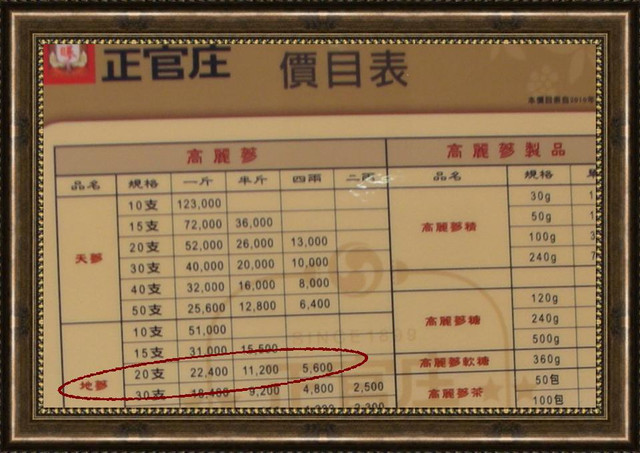 正官庄 價目表
本價目表自2016年
高麗蔘
品名 規格 一斤 半斤 四兩 二兩
天蔘
10支 123,000
15支 72,000 36,000
20支 52,000 26,000 13,000
30支 40,000 20,000 10,000
40支 32,000 16,000 8,000
50支 25,600 12,800 6,400
地蔘
10支 51,000
15支 31,000 15,500
20支 22,400 11,200 5,600
30支 18,400 9,200 4,800 2,500
2,300
高麗蔘製品
品名 規格
高麗蔘精
30g
50g
100g
240g
高麗蔘糖
120g
240g
500g
高麗蔘軟糖 360g
高麗蔘茶
50包
100包
SINCE1899
正官庄